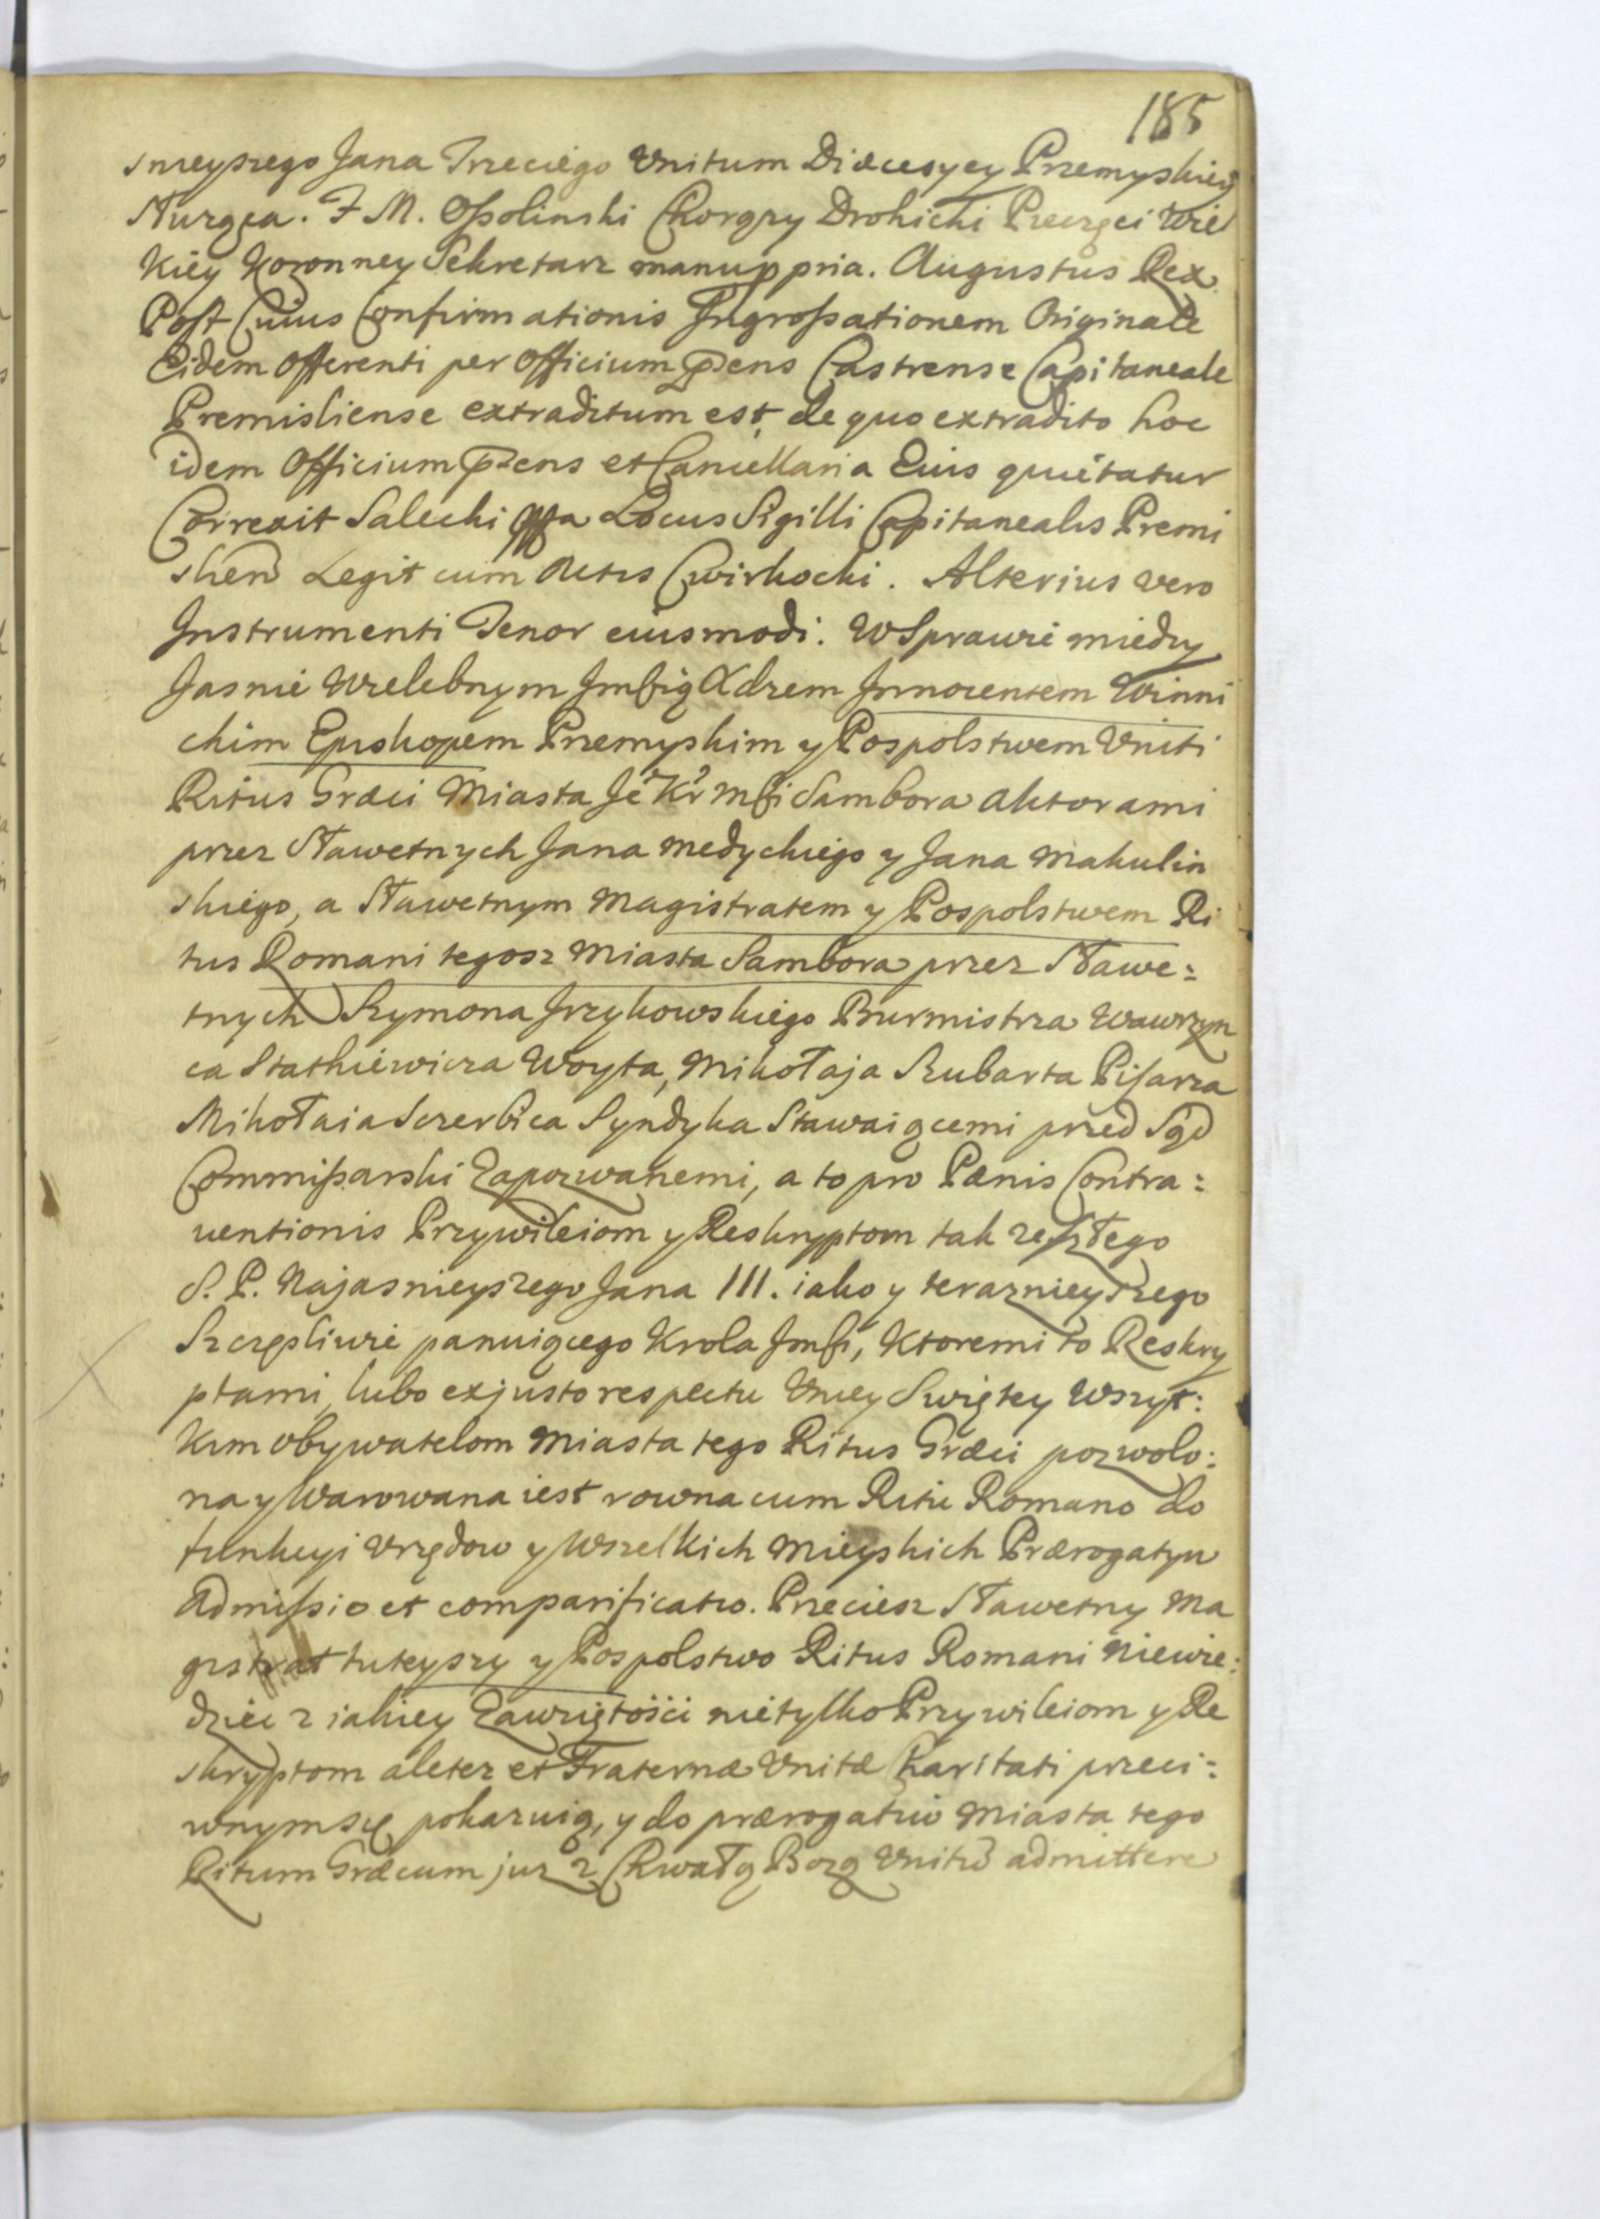 185
snieyszego Jana Trzeciego Vnitum Diæcesyey Przemyskiey
Sturgea. F M. Ossolinski Chorąży Drohicki Pieczęci Wiel
kiey Koronney Sekretarz manu ppria. Augustus Rex
Post Cuius Confirmationis Ingrossationem Originale
Eidem offerenti per officium pńens Castrense Capitaneale
Premisliense extraditum est, de quo extradito hoc
idem officium pńens et Cancellaria Eius quietatur
Correxit Salecki mpa Locus Sigilli Capitanealis Premi
slien Legit cum Actis Cwirkocki. Alterius vero
Instrumenti Tenor eiusmodi. W Sprawie miedzy
Jasnie Wielebnym Jmścią Xdzem Innocentem Winni
ckim Episkopem Przemyskim y Pospolstwem Vniti
Ritus Græci Miasta Jé Kr mśi Sambora Aktorami
przez Sławetnych Jana Medyckiego y Jana Makulin
skiego, a Sławetnym Magistratem y Pospolstwem Ri
tus Romani tegosz Miasta Sambora przez Sławe:
tnych Szymona Jrzykowskiego Burmistrza Wawrzyn
ca Statkiewicza Woyta, Mikołaja Szubarta Pisarza
Mikołaia Sczerbica Syndyka Stawaiącemi przed Sąd
Commissarski Zapozwanemi, a to pro Pænis Contra:
uentionis Przywileiom y Reskryptom tak zeszłego
S. P. Najasnieyszego Jana III. iako y teraznieyszego
Szczęsliwie panuiącego Krola Jmśi, Ktoremi to Reskry
ptami, lubo ex justo respectu Vniey Swiętey Wszyt:
kim obywatelom Miasta tego Ritus Græci pozwolo:
na y Warowana iest rowna cum Ritu Romano do
funkcyi Vrzędow y Wszelkich Mieyskich Prærogatyw
Admissio et comparificatio. Przeciesz Sławetny Ma
gistrat tuteyszy y Pospolstwo Ritus Romani Niewie:
dziec z iakiey Zawziętości nietylko Przywileiom y Re
skryptom ale tez et Fraternæ Vnitæ Charitati przeci:
wnym się pokazuią, y do prærogatiw Miasta tego
Ritum Græcum juz z Chwałą Bozą Vnitū admittere